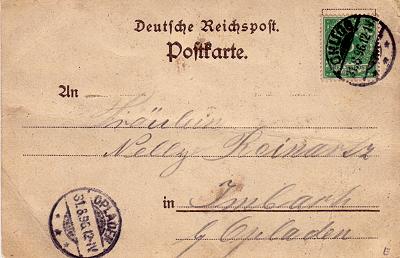 Deutsche Reichspost.
Postkarte.
An
Fräulein
Nelly Reinartz
in Imbach
b/ Opladen
OPLADEN
31.8.96.12-1V
E